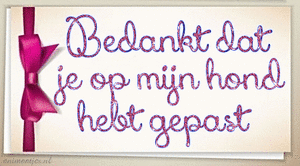 Bedankt dat
je op mijn hond
hebt gepast